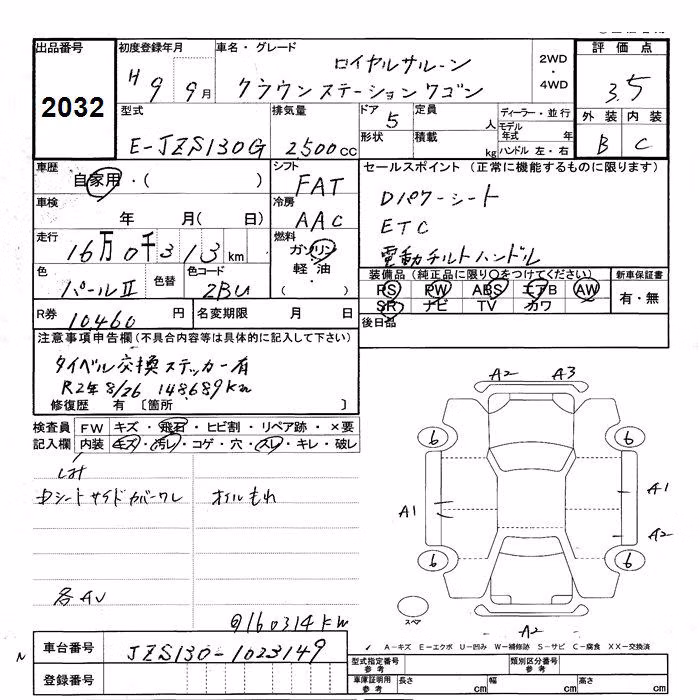 出品番号
2032
初度登録年月
H 9 9月
車名・グレード
ロイヤルサルーン
クラウン ステーションワゴン
2WD
・
4WD
評価点
3.5
外装 内装
B C
型式
E-JZS130G
排気量
2500cc
ドア 5
形状
定員 人
積載 kg
ディーラー・並行
モデル年式 年
ハンドル 左・右
車歴
自家用・( )
シフト
FAT
セールスポイント(正常に機能するものに限ります)
Dパワーシート
ETC
電動チルトハンドル
車検
年 月( 日)
冷房
AAC
走行
16万0千313km
燃料
ガソリン
軽油・
( )
色
パールⅡ
色替
色コード
2BU
装備品(純正品に限り○をつけてください)
PS PW ABS エアB AW
SR ナビ TV カワ
新車保証書
有・無
R券 10,460 円
名変期限 月 日
後日品
注意事項申告欄(不具合内容等は具体的に記入して下さい)
タイベル交換ステッカー有
R2年8/26 148689km
修復歴 有〔箇所 〕
検査員記入欄
FW キズ・飛石・ヒビ割・リペア跡・×要
内装 キズ・汚レ・コゲ・穴・スレ・キレ・破レ
シートサイドカバーワレ
オイルもれ
各AU
160314km
A2 A3
6 6
A1 A1
A2
6 6
スペア
A2
A-キズ E-エクボ U-凹み W-補修跡 S-サビ C-腐食 XX-交換済
車台番号
JZS130-1023149
登録番号
型式指定番号 参考
類別区分番号 参考
車庫証明用 参考
長さ cm
幅 cm
高さ cm